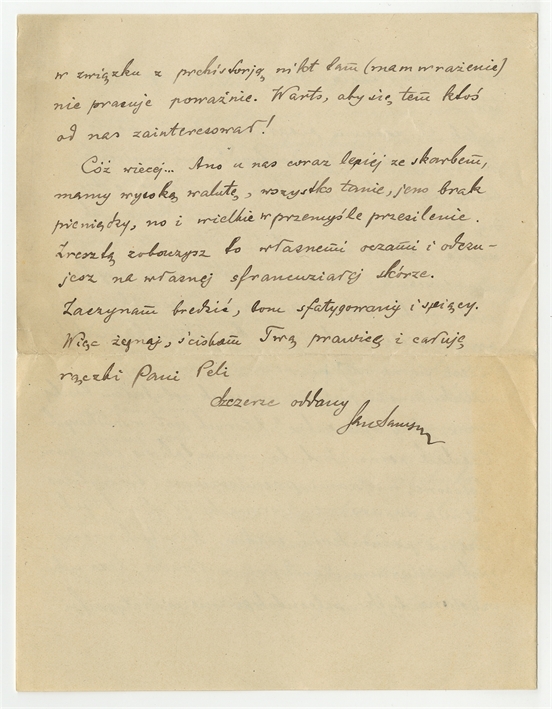 w związku z prehistorją nikt tam (mam wrażenie)
nie pracuje poważnie. Warto, aby się tem ktoś
od nas zainteresował!
Cóż więcej... Ano u nas coraz lepiej ze skarbem,
mamy wysoką walutę, wszystko tanie, jeno brak
pieniędzy, no i wielkie w przemyśle przesilenie.
Zresztą zobaczysz to własnemi oczami i odczu-
jesz na własnej sfrancuziałej skórze.
Zaczynam bredzić, bom sfatygowany i śpiący.
Więc żegnaj, ściskam Twą prawicę i całuję
rączki Pani Peli
Szczerze oddany
Jan